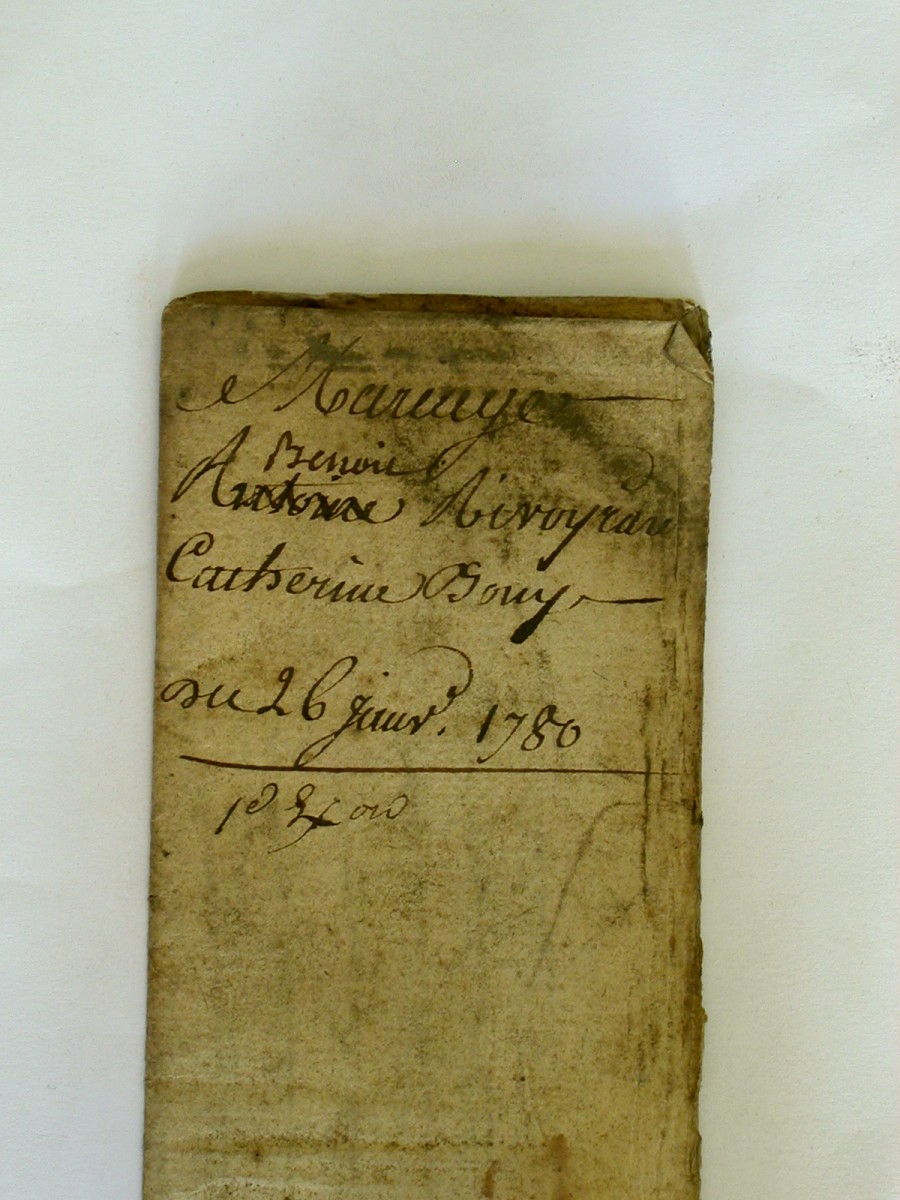 Mariage
Benoit
Antoine Rivoyran
Catherine Bouy
du 26 janv. 1780